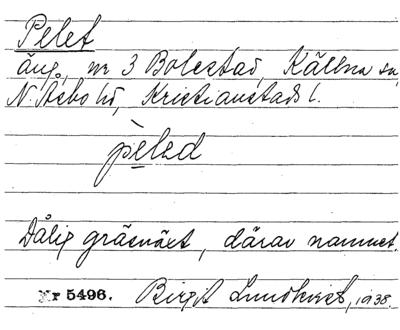 Pelet
äng, nr 3 Bolestad, Källna sn,
N. Åsbo hd, Kristianstads l.
pèled
Dålig gräsväxt, därav namnet.
Nr 5496. Birgit Lundkvist, 1938.